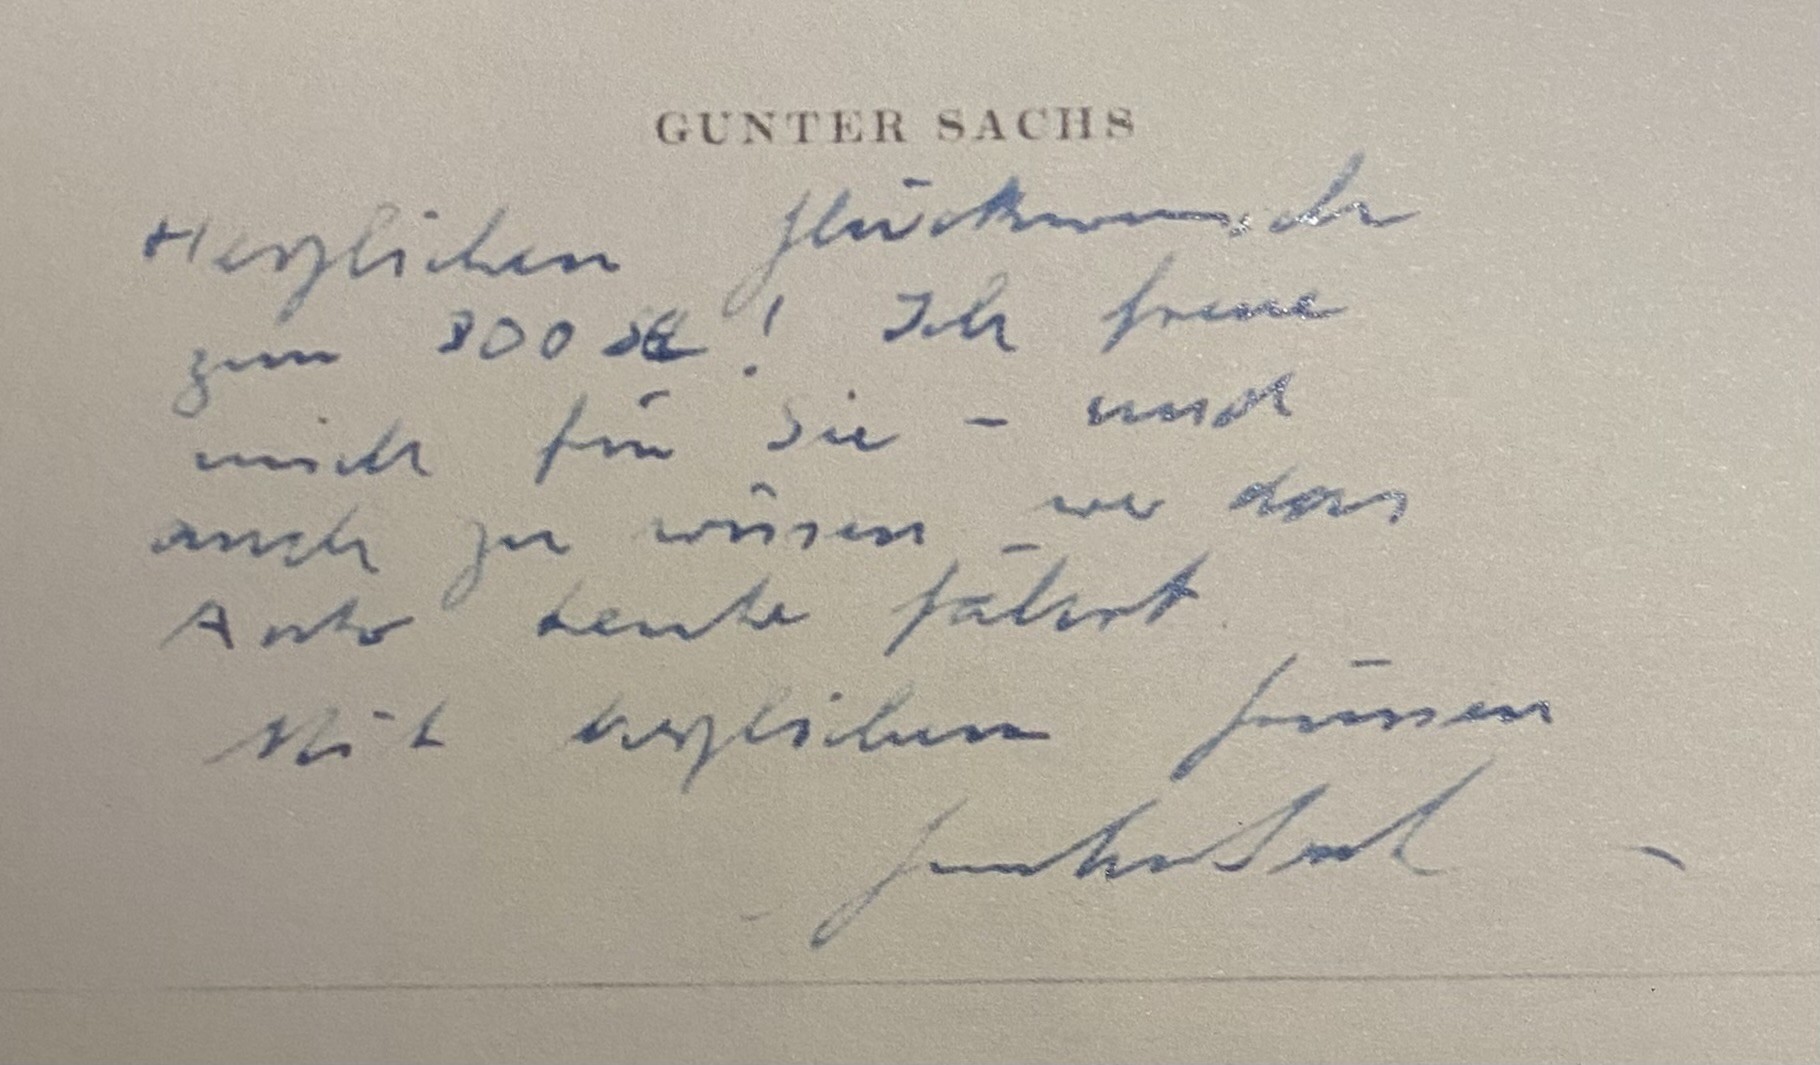 GUNTER SACHS
Herzlichen Glückwunsch
zum 300 SE! Ich freue
mich für Sie - und
auch zu wissen wer das
Auto heute fährt.
Mit herzlichen Grüssen
Gunter Sachs